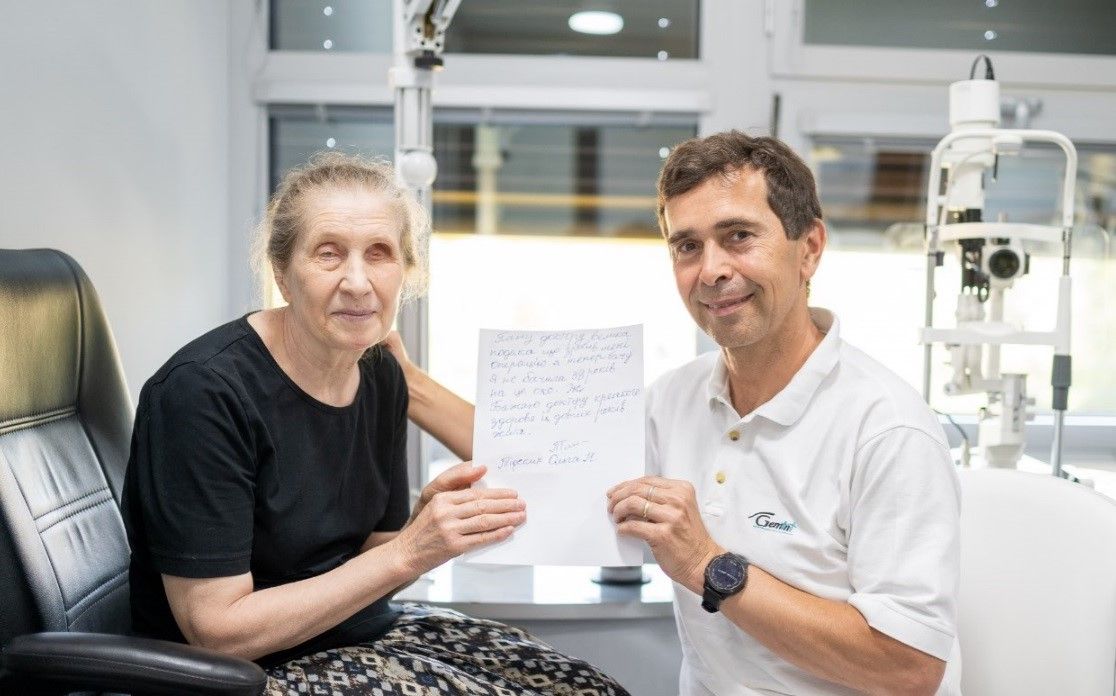 Пану доктру велика
подяка що зробив мені
операцію я тепер бачу
Я не бачила 39 років
на це око. Же
бажаю доктру крепкого
здоровя із довгих років
жита.
Ольга М
Gemini